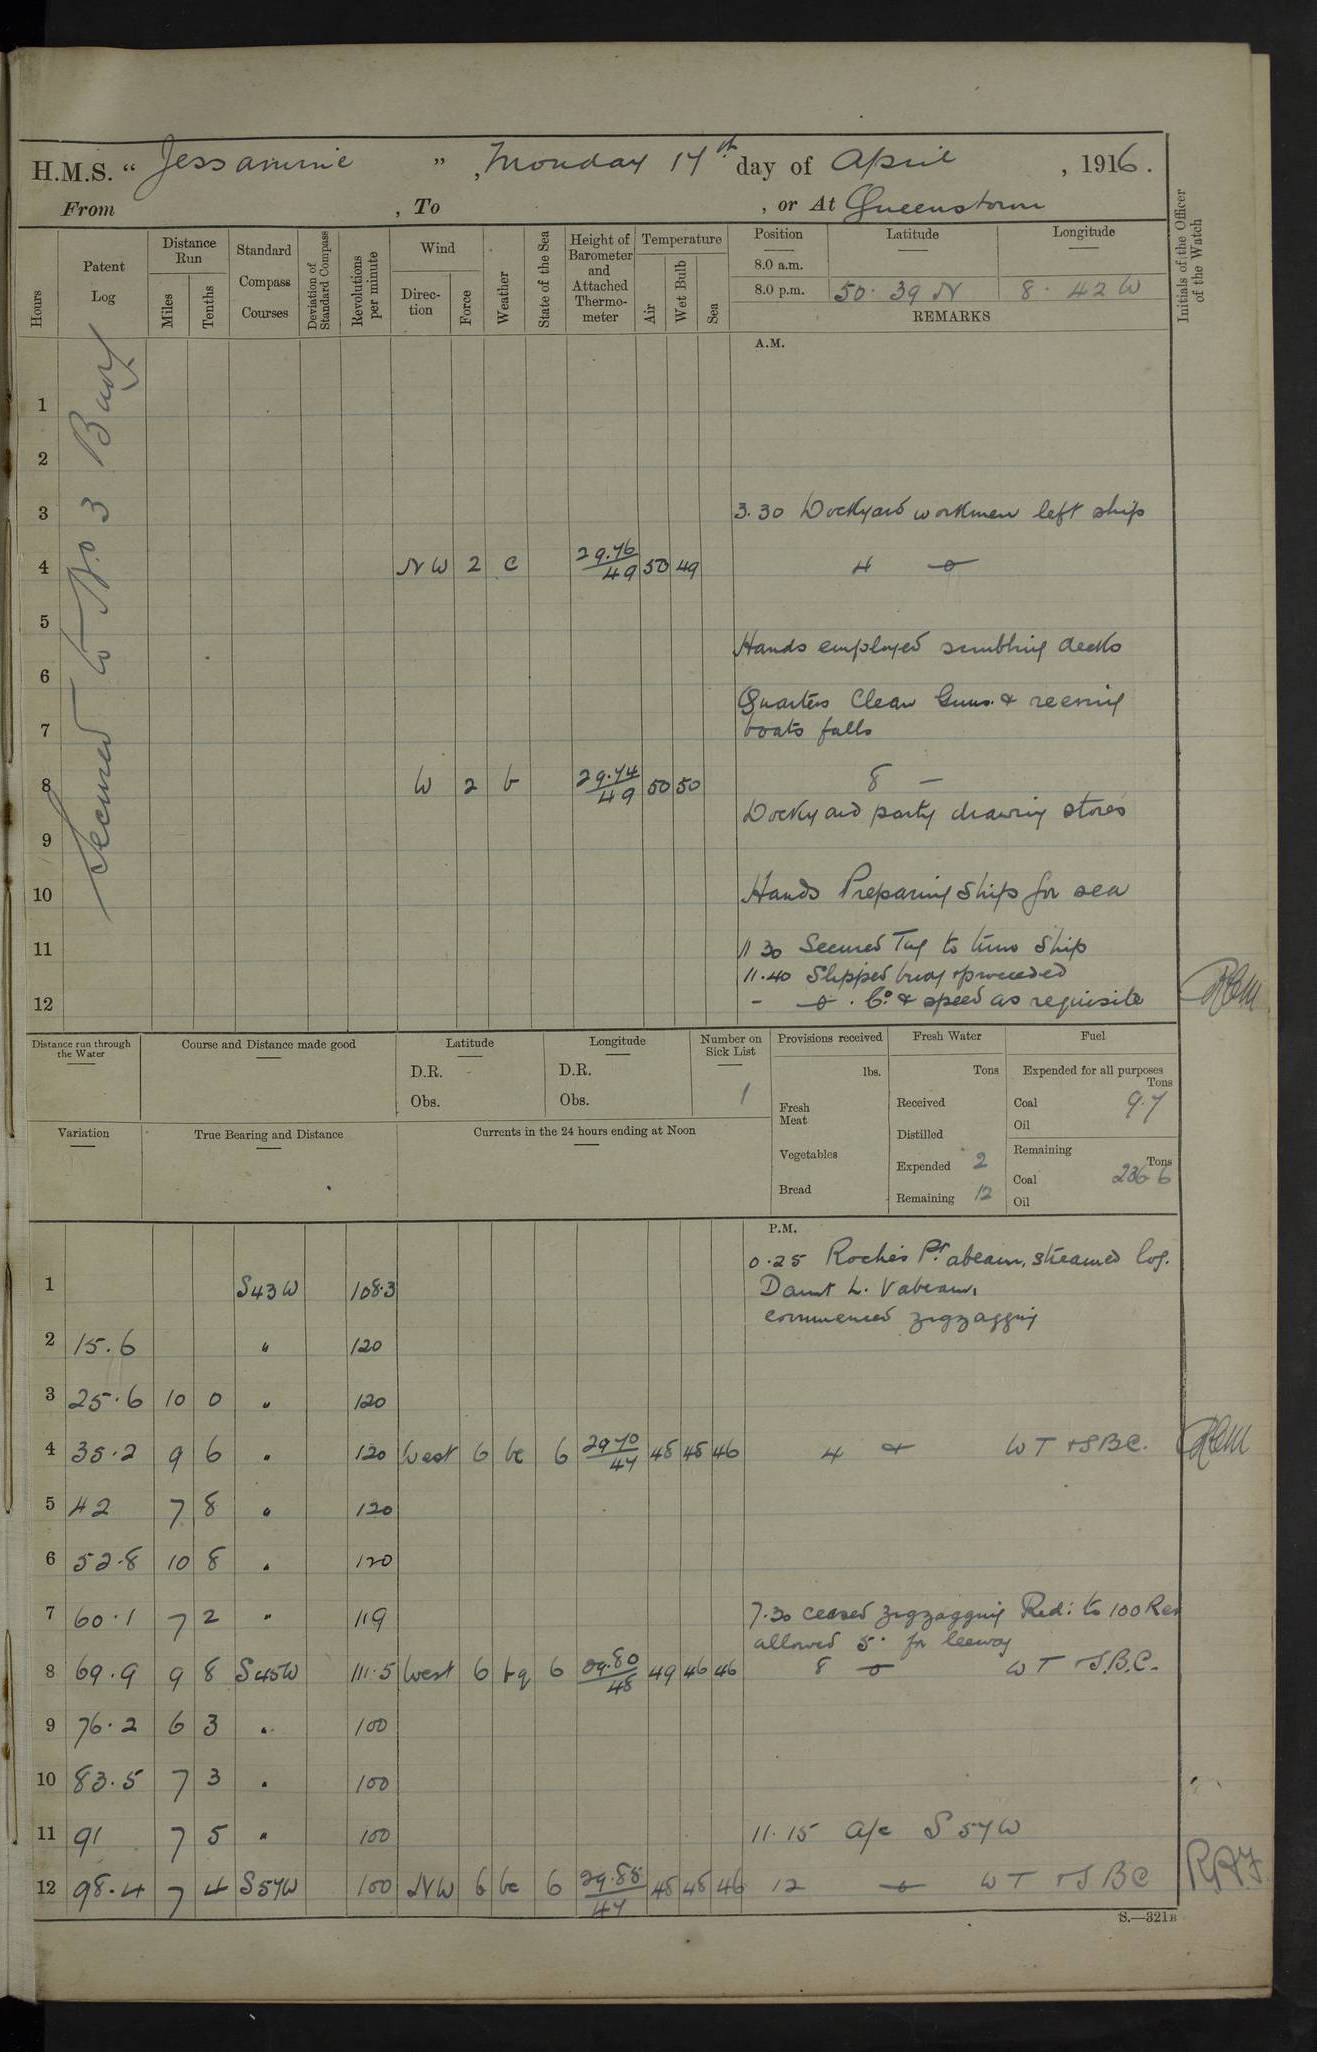 H.M.S. “ Jessamine ” , Monday 17th day of April , 1916.
From , To , or At Queenstown
Hours
Patent Log
Distance Run
Miles
Tenths
Standard Compass Courses
Deviation of Standard Compass
Revolutions per minute
Wind
Direction
Force
Weather
State of the Sea
Height of Barometer and Attached Thermometer
Temperature
Air
Wet Bulb
Sea
Position
Latitude
Longitude
8.0 a.m.
8.0 p.m. 50. 39 N 8. 42 W
REMARKS
Initials of the Officer of the Watch
Secured to No 3 Buoy
A.M.
1
2
3 3.30 Dockyard workmen left ship
4 NW 2 c 29.76/49 50 49 4
5
Hands employed scrubbing decks
6
Quarters Clean Guns & reeving
7 boats falls
8 W 2 b 29.74/49 50 50 8 –
Dockyard party drawing stores
9
10 Hands Preparing Ship for sea
11 11 30 Secured Tug to turn Ship
11.40 Slipped buoy & proceeded
12 - . Co. & speed as requisite
Distance run through the Water
Course and Distance made good
Latitude
D.R.
Obs.
Longitude
D.R.
Obs.
Number on Sick List
1
Provisions received
lbs.
Fresh Meat
Vegetables
Bread
Fresh Water
Tons
Received
Distilled
Expended 2
Remaining 12
Fuel
Expended for all purposes
Tons
Coal 9.7
Oil
Remaining
Tons
Coal 236 6
Oil
Variation
True Bearing and Distance
Currents in the 24 hours ending at Noon
P.M.
0.25 Roches Pt. abeam, streamed log.
1 S43W 108.3 Daunt L. V abeam,
commenced zigzagging
2 15.6 " 120
3 25.6 10 0 " 120
4 35.2 9 6 " 120 West 6 bc 6 29 70/47 48 48 46 4 WT & SBC.
5 42 7 8 " 120
6 52.8 10 8 " 120
7 60.1 7 2 " 119 7.30 ceased zigzagging Red: to 100 Rev
allowed 5° for leeway
8 69.9 9 8 S45W 111.5 West 6 bq 6 29.80/48 49 46 46 8 WT & S.B.C.
9 76.2 6 3 " 100
10 83.5 7 3 " 100
11 91 7 5 " 100 11.15 a/c S 57W
12 98.4 7 4 S57W 100 NW 6 bc 6 29.88/47 48 48 46 12 WT & SBC
S.—321B